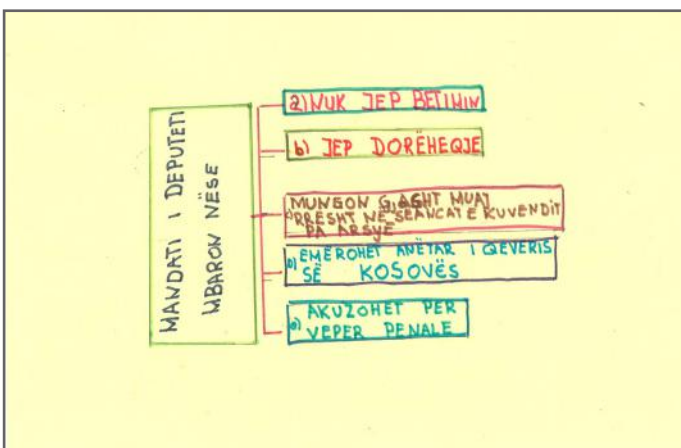 MANDATI I DEPUTETI
MBARON NËSE
a) NUK JEP BETIMIN
b) JEP DORËHEQJE
MUNGON GJASHT MUAJ
c) RRESHT NË SEANCAT E KUVENDIT
PA ARSYE
EMËROHET ANËTAR I QEVERIS
D) SË KOSOVËS
AKUZOHET PER
e) VEPER PENALE